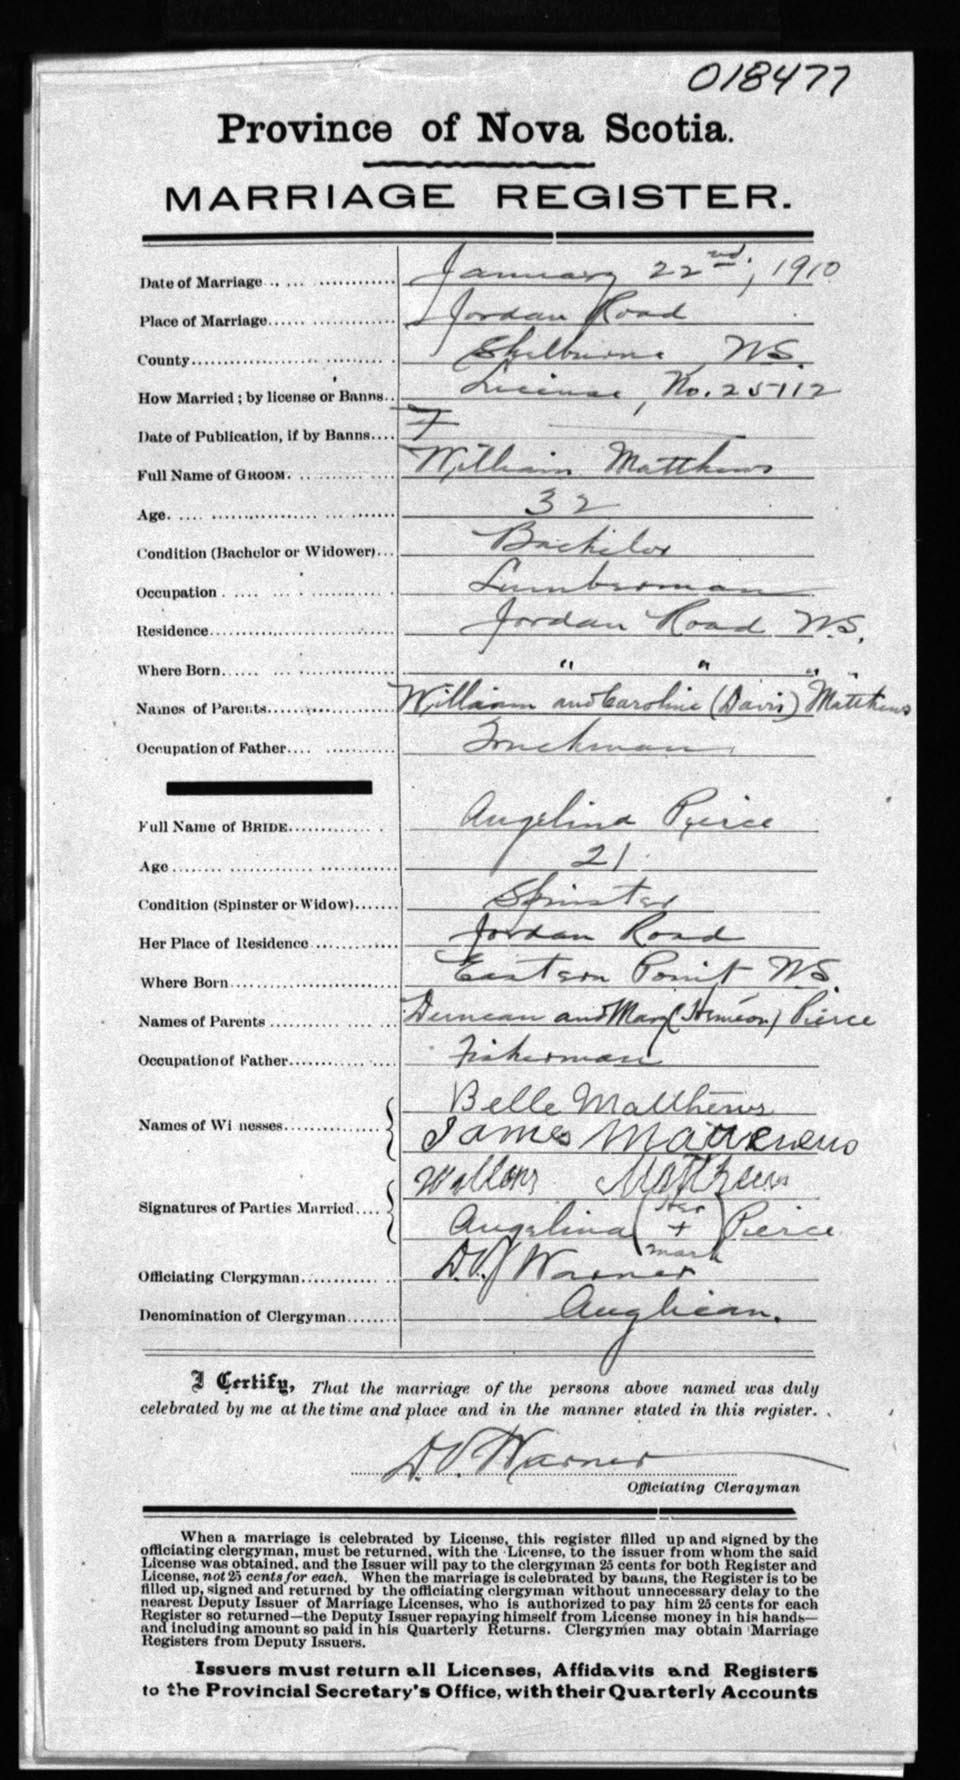 018477
Province of Nova Scotia.
MARRIAGE REGISTER.
Date of Marriage January 22nd, 1910
Place of Marriage Jordan Road
County Shelburne N.S.
How Married; by license or Banns License, No. 25112
Date of Publication, if by Banns
Full Name of GROOM. William Matthews
Age. 32
Condition (Bachelor or Widower) Bachelor
Occupation Lumberman
Residence Jordan Road N.S.
Where Born " " " "
Names of Parents William and Caroline (Davis) Matthews
Occupation of Father Truckman
Full Name of BRIDE Angelina Pierce
Age 21
Condition (Spinster or Widow) Spinster
Her Place of Residence Jordan Road
Where Born Eastern Point N.S.
Names of Parents Duncan and Mary ( ) Pierce
Occupation of Father Fisherman
Belle Matthews
Names of Witnesses James Matthews
Matthews
Signatures of Parties Married Angelina (Her + mark) Pierce
Officiating Clergyman D.V. Warner
Denomination of Clergyman Anglican.
I Certify, That the marriage of the persons above named was duly
celebrated by me at the time and place and in the manner stated in this register.
D.V. Warner
Officiating Clergyman
When a marriage is celebrated by License, this register filled up and signed by the
officiating clergyman, must be returned, with the License, to the issuer from whom the said
License was obtained, and the Issuer will pay to the clergyman 25 cents for both Register and
License, not 25 cents for each. When the marriage is celebrated by banns, the Register is to be
filled up, signed and returned by the officiating clergyman without unnecessary delay to the
nearest Deputy Issuer of Marriage Licenses, who is authorized to pay him 25 cents for each
Register so returned—the Deputy Issuer repaying himself from License money in his hands—
and including amount so paid in his Quarterly Returns. Clergymen may obtain Marriage
Registers from Deputy Issuers.
Issuers must return all Licenses, Affidavits and Registers
to the Provincial Secretary's Office, with their Quarterly Accounts